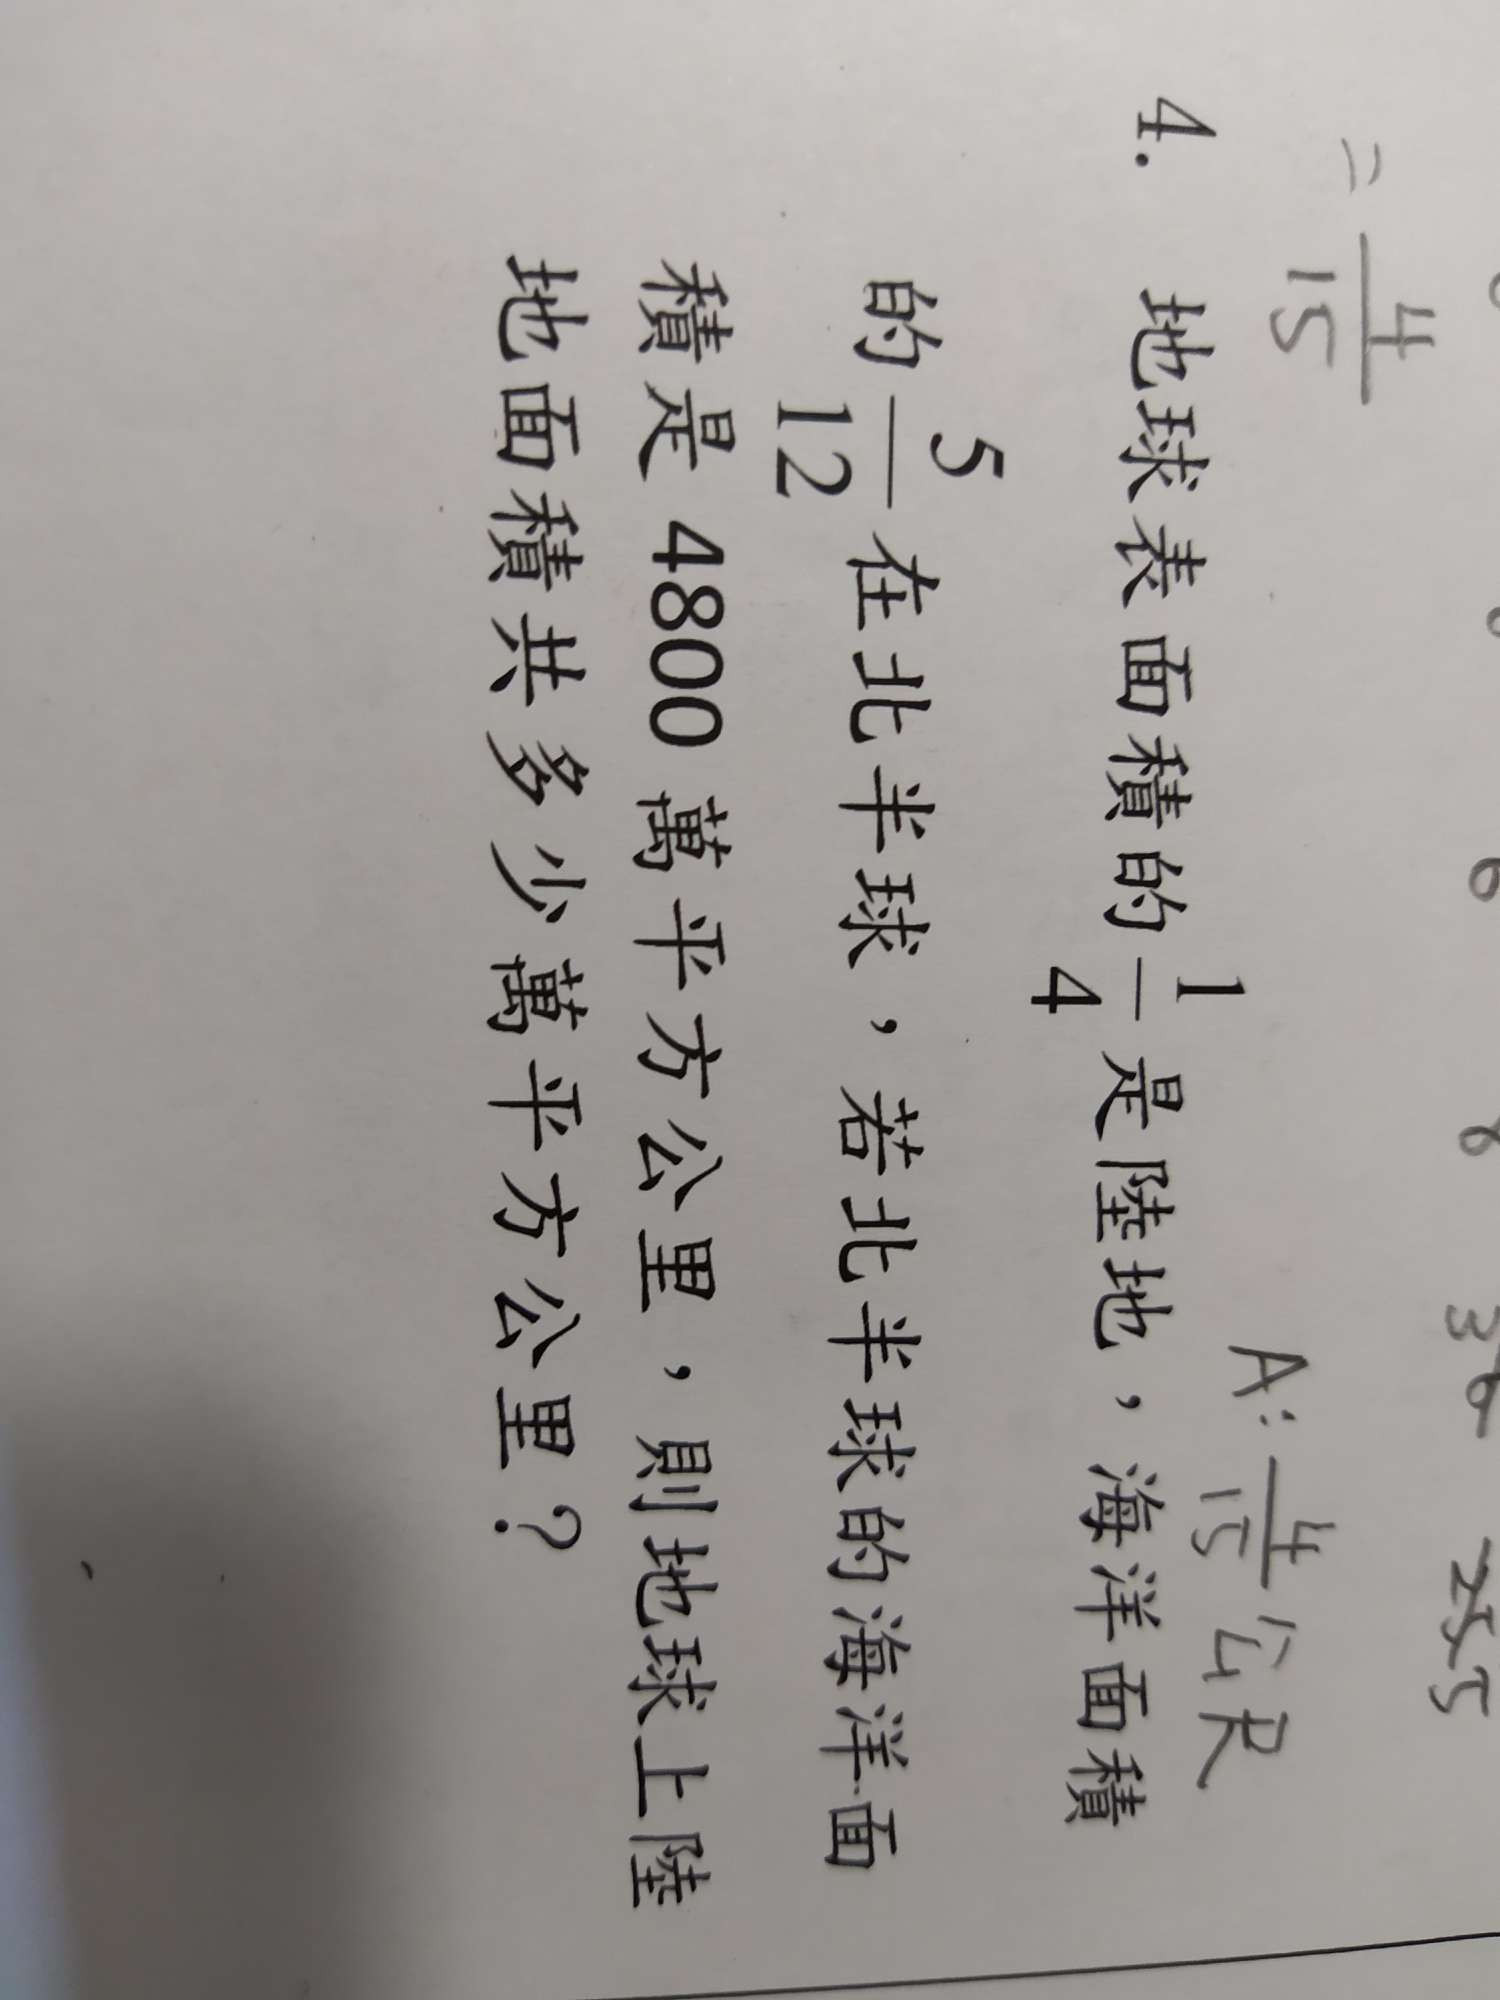 = 4/15
A: 4/15 公尺
4. 地球表面積的 1/4 是陸地，海洋面積
的 5/12 在北半球，若北半球的海洋面
積是 4800 萬平方公里，則地球上陸
地面積共多少萬平方公里？